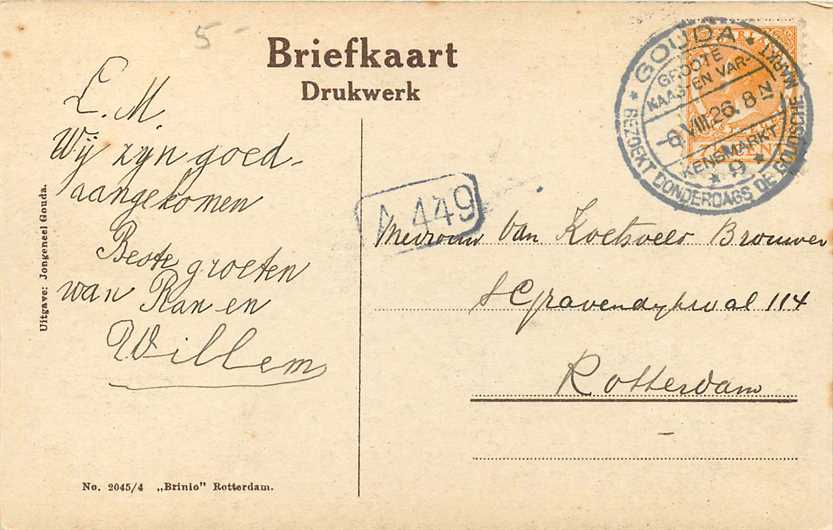 5-
Briefkaart
Drukwerk
L. M.
Wij zyn goed-
aangekomen
Beste groeten
van Ran en
Willem
Uitgave: Jongeneel Gouda.
No. 2045/4 „Brinio" Rotterdam.
A 449
GOUDA
GROOTE
KAAS-EN VAR-
-6 VIII.26. 8 N
KENSMARKT
* 9 *
BEZOEKT DONDERDAGS DE GOUDSCHE MARKT
Mevrouw Van Koetsveld Brouwer
'sGravendykwal 114
Rotterdam